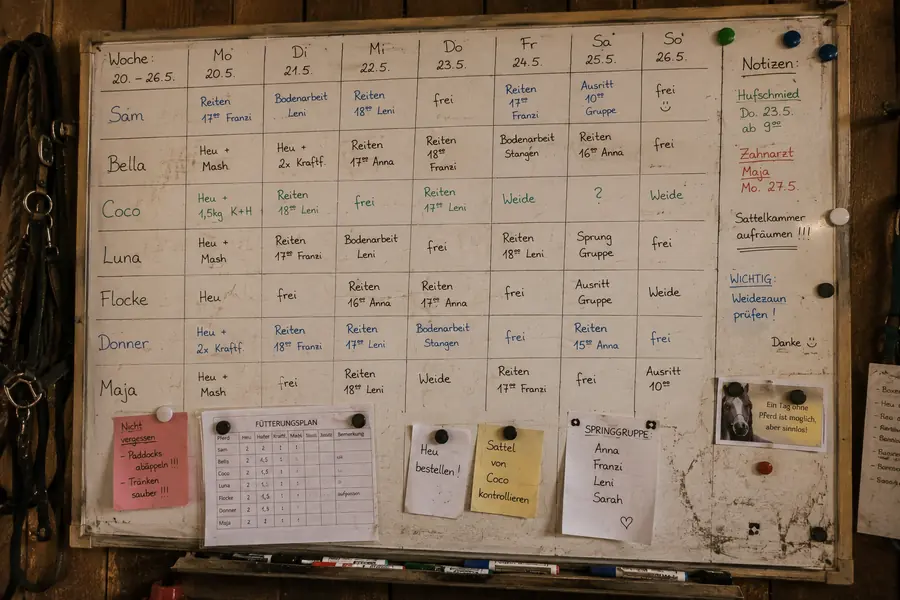 Woche:
20. – 26.5.
Mo
20.5.
Di
21.5.
Mi
22.5.
Do
23.5.
Fr
24.5.
Sa
25.5.
So
26.5.
Sam
Reiten
17⁰⁰ Franzi
Bodenarbeit
Leni
Reiten
18⁰⁰ Leni
frei
Reiten
17⁰⁰
Franzi
Ausritt
10⁰⁰
Gruppe
frei
☺
Bella
Heu +
Mash
Heu +
2x Kraftf.
Reiten
17⁰⁰ Anna
Reiten
18⁰⁰
Franzi
Bodenarbeit
Stangen
Reiten
16⁰⁰ Anna
frei
Coco
Heu +
1,5kg K+H
Reiten
18⁰⁰ Leni
frei
Reiten
17⁰⁰ Leni
Weide
?
Weide
Luna
Heu +
Mash
Reiten
17⁰⁰ Franzi
Bodenarbeit
Leni
frei
Reiten
18⁰⁰ Leni
Sprung
Gruppe
frei
Flocke
Heu
frei
Reiten
16⁰⁰ Anna
Reiten
17⁰⁰ Anna
frei
Ausritt
Gruppe
Weide
Donner
Heu +
2x Kraftf.
Reiten
18⁰⁰ Franzi
Reiten
17⁰⁰ Leni
Bodenarbeit
Stangen
frei
Reiten
15⁰⁰ Anna
frei
Maja
Heu +
Mash
frei
Reiten
18⁰⁰ Leni
Weide
Reiten
17⁰⁰ Franzi
frei
Ausritt
10⁰⁰
Notizen:
Hufschmied
Do. 23.5.
ab 9⁰⁰
Zahnarzt
Maja
Mo. 27.5.
Sattelkammer
aufräumen !!!
WICHTIG:
Weidezaun
prüfen !
Danke ☺
Ein Tag ohne
Pferd ist möglich,
aber sinnlos!
Nicht
vergessen
- Paddocks
abäppeln !!!
- Tränken
sauber !!!
FÜTTERUNGSPLAN
Pferd Heu Hafer Kraftf. Bemerkung
Sam 2 2
Bella 2
Coco 2
Luna 2
Flocke 2 aufpassen
Donner 2
Maja 2 2
Heu
bestellen !
Sattel
von
Coco
kontrollieren
SPRINGGRUPPE:
Anna
Franzi
Leni
Sarah
♡